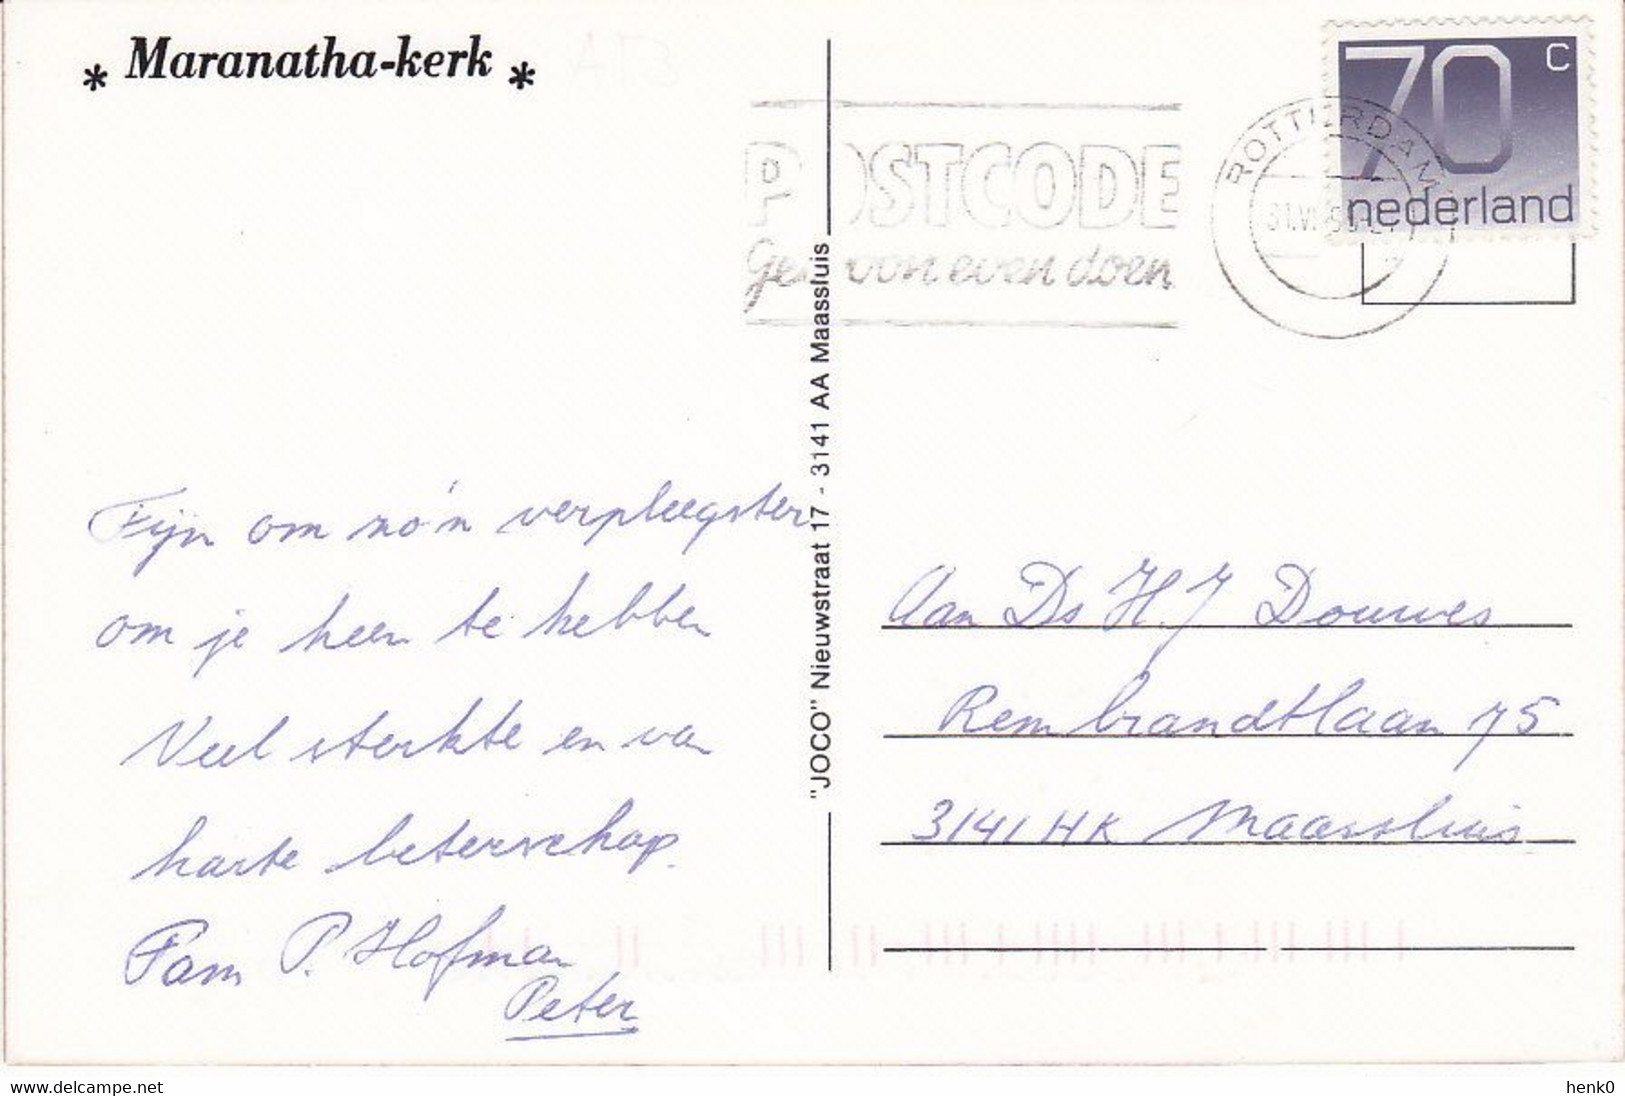 * Maranatha-kerk *
POSTCODE
Gewoon even doen
ROTTERDAM
70 c
nederland
"JOCO" Nieuwstraat 17 - 3141 AA Maassluis
Fijn om zo'n verpleegster
om je heen te hebben
Veel sterkte en van
harte beterschap.
Fam P. Hofman
Peter
Aan Ds H.J Douwes
Rembrandtlaan 75
3141 HK Maassluis
www.delcampe.net
henk0